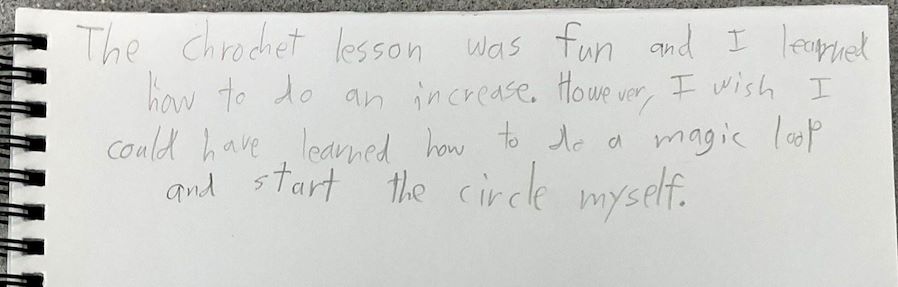 The Chrochet lesson was fun and I learned
how to do an increase. However, I wish I
could have learned how to do a magic loop
and start the circle myself.